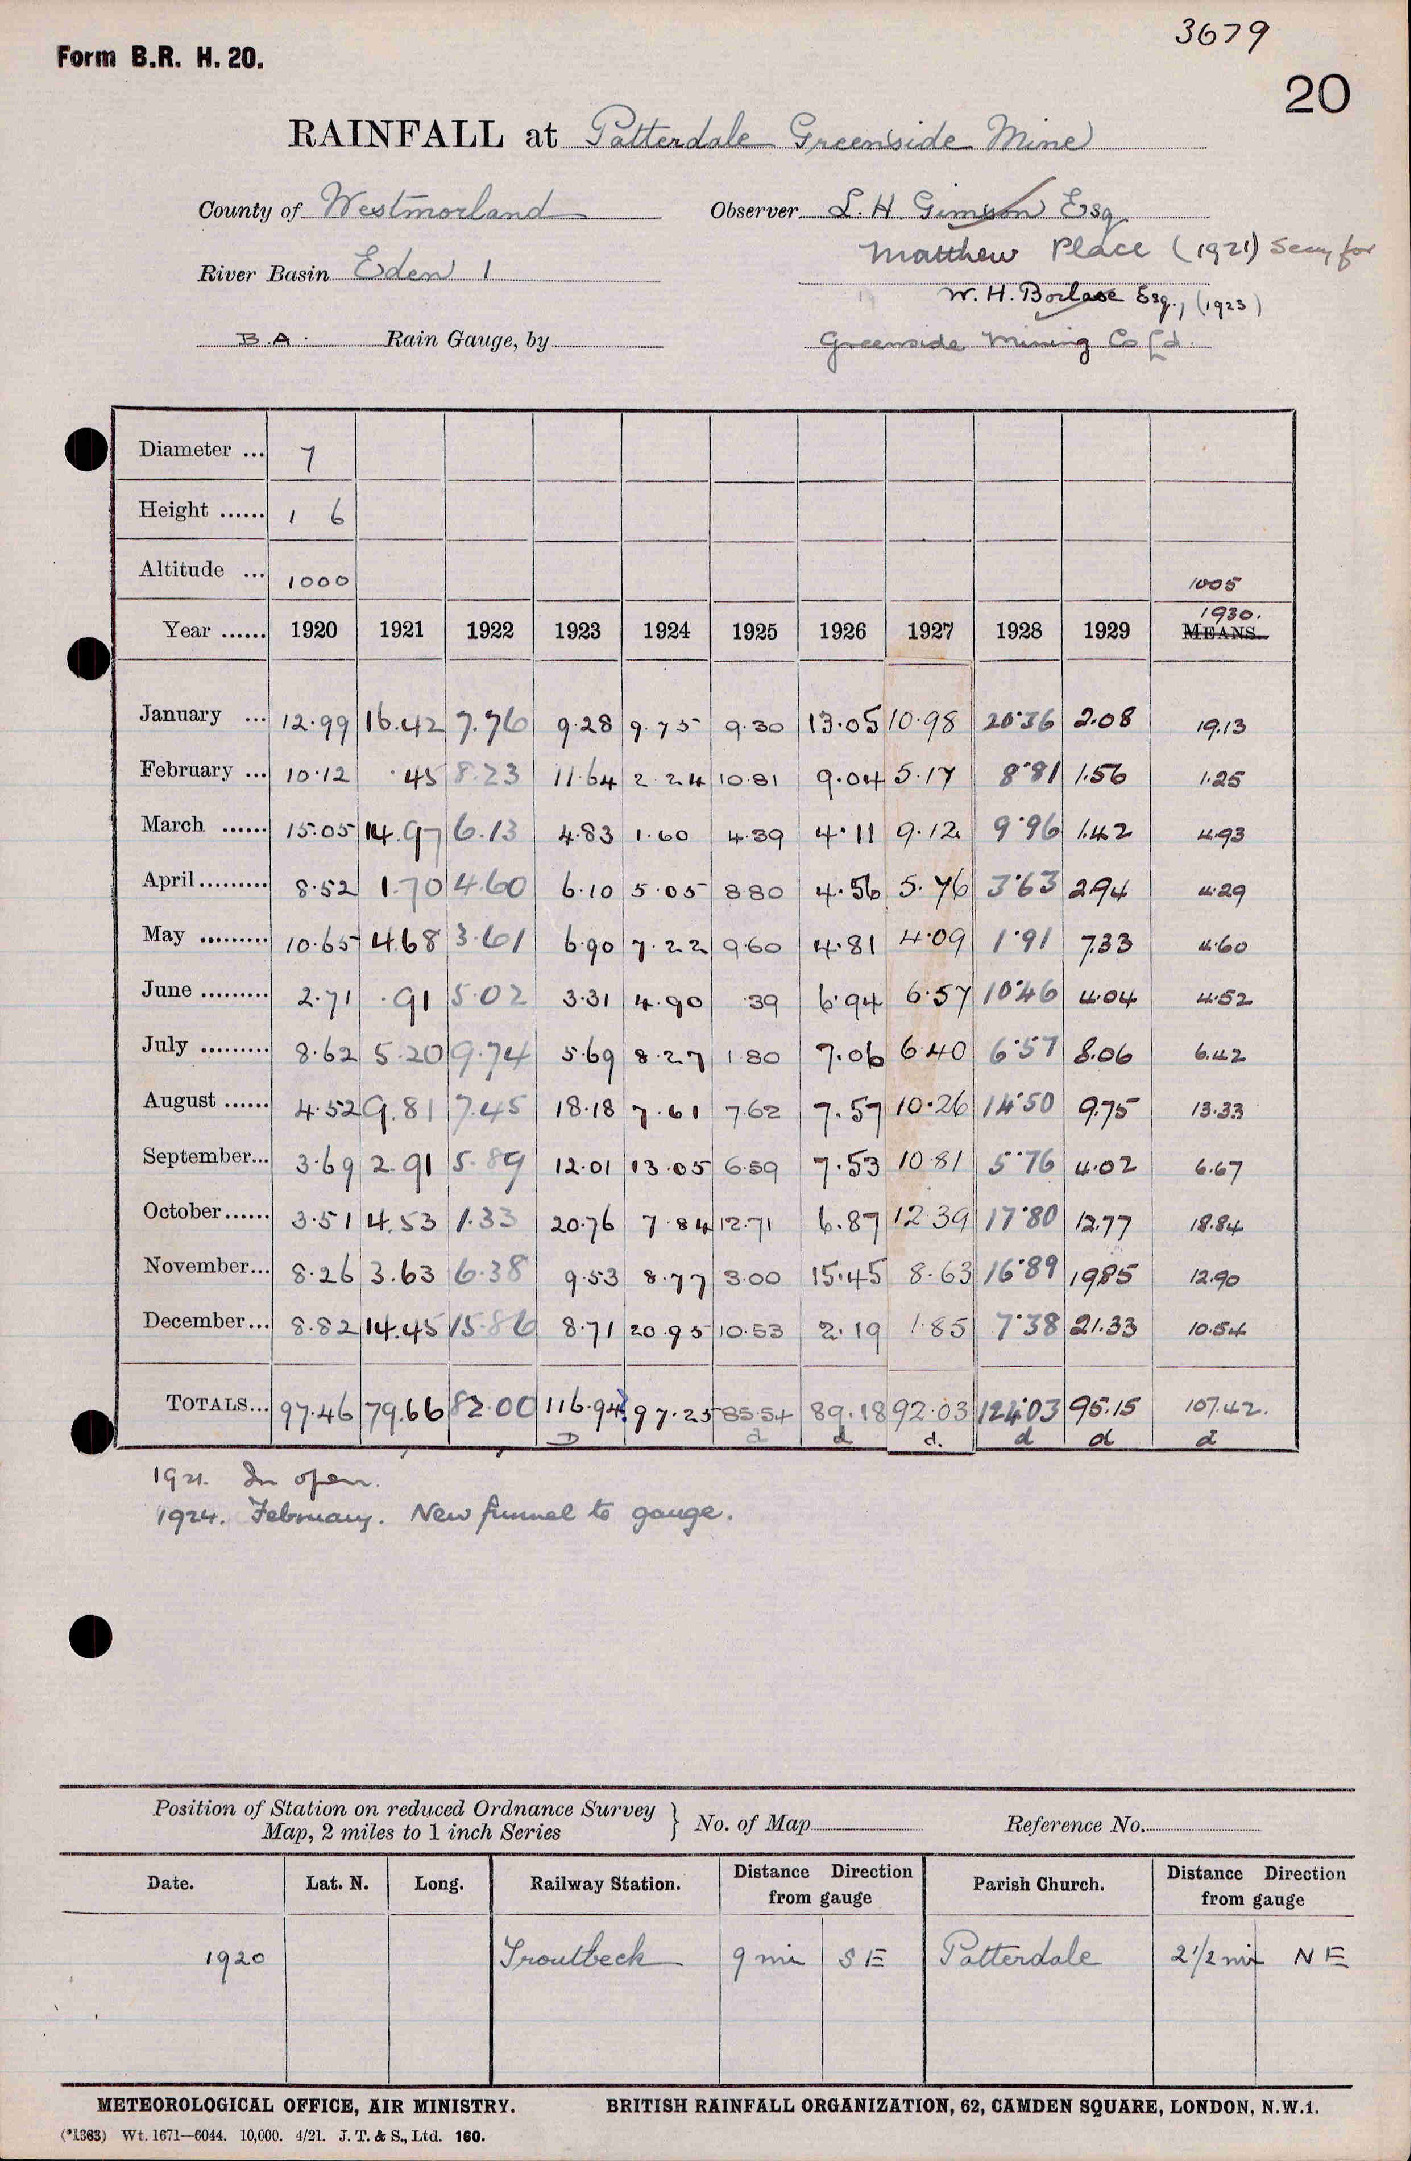 3679
Form B.R. H. 20.
20
RAINFALL at Patterdale Greenside Mine
County of Westmorland Observer L. H Gimson Esq
Matthew Place (1921) Secy for
River Basin Eden 1
W. H. Borlase Esq., (1923)
B.A. Rain Gauge, by Greenside Mining Co Ld.
Diameter ... 7
Height ...... 1 6
Altitude ... 1000 1005
1930.
Year ...... 1920 1921 1922 1923 1924 1925 1926 1927 1928 1929 MEANS.
January ... 12.99 16.42 7.76 9.28 9.75 9.30 13.05 10.98 20.36 2.08 19.13
February ... 10.12 .45 8.23 11.64 2.24 10.81 9.04 5.17 8.81 1.56 1.25
March ...... 15.05 14.97 6.13 4.83 1.60 4.39 4.11 9.12 9.96 1.42 4.93
April ......... 8.52 1.70 4.60 6.10 5.05 8.80 4.56 5.76 3.63 2.94 4.29
May ......... 10.65 4.68 3.61 6.90 7.22 9.60 4.81 4.09 1.91 7.33 4.60
June ......... 2.71 .91 5.02 3.31 4.90 .39 6.94 6.57 10.46 4.04 4.52
July ......... 8.62 5.20 9.74 5.69 8.27 1.80 7.06 6.40 6.57 8.06 6.42
August ...... 4.52 9.81 7.45 18.18 7.61 7.62 7.57 10.26 14.50 9.75 13.33
September... 3.69 2.91 5.89 12.01 13.05 6.59 7.53 10.81 5.76 4.02 6.67
October...... 3.51 4.53 1.33 20.76 7.84 12.71 6.87 12.39 17.80 12.77 18.84
November... 8.26 3.63 6.38 9.53 8.77 3.00 15.45 8.63 16.89 19.85 12.90
December... 8.82 14.45 15.86 8.71 20.95 10.53 2.19 1.85 7.38 21.33 10.54
TOTALS... 97.46 79.66 82.00 116.94? 97.25 85.54 89.18 92.03 124.03 95.15 107.42.
D d d d. d d d
1921. In open.
1924. February. New funnel to gauge.
Position of Station on reduced Ordnance Survey
Map, 2 miles to 1 inch Series } No. of Map Reference No.
Date. Lat. N. Long. Railway Station. Distance Direction from gauge Parish Church. Distance Direction from gauge
1920 Troutbeck 9 mi S E Patterdale 2 1/2 mi N E
METEOROLOGICAL OFFICE, AIR MINISTRY. BRITISH RAINFALL ORGANIZATION, 62, CAMDEN SQUARE, LONDON, N.W.1.
(*1363) Wt. 1671—6044. 10,000. 4/21. J. T. & S., Ltd. 160.